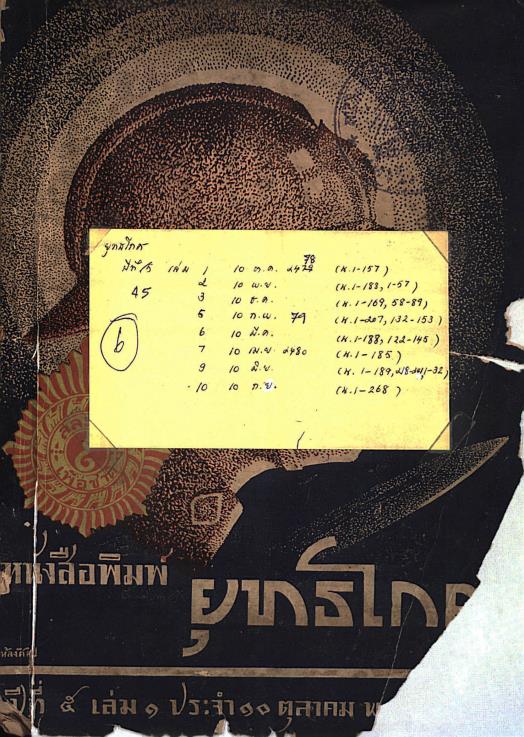 ยุทธโกษ
ปีที่ ๕ เล่ม 1 10 ต.ค. ๒๔78 (น.1-157)
45 2 10 พ.ย. (น.1-183, 1-57)
3 10 ธ.ค. (น.1-169, 58-89)
5 10 ก.พ. 79 (น.1-207, 132-153)
6 6 10 มี.ค. (น.1-188, 122-145)
7 10 เม.ย. ๒480 (น.1-185)
9 10 มิ.ย. (น.1-189, 1-32)
10 10 ก.ย. (น.1-268)
หนังสือพิมพ์
ยุทธโก
ปีที่ ๕ เล่ม ๑ ประจำ ๑๐ ตุลาคม พ